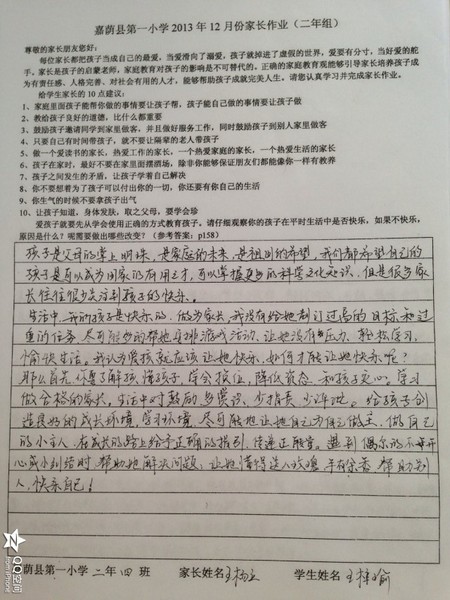 嘉荫县第一小学2013年12月份家长作业（二年组）
尊敬的家长朋友您好：
每位家长都把孩子当成自己的最爱，当爱滑向了溺爱，孩子就掉进了虚假的世界，爱要有分寸，当好爱的舵
手，家长是孩子的启蒙老师，家庭教育对孩子的影响是不可替代的，正确的家庭教育观能够引导家长培养孩子成
为有责任感、人格完善、对社会有用的人才，能够帮助孩子成就完美人生，请您认真学习并完成家长作业。
给学生家长的10点建议：
1、家庭里面孩子能帮你做的事情要让孩子帮，孩子能自己做的事情要让孩子做
2、教给孩子良好的道德，比什么都重要
3、鼓励孩子邀请同学到家里做客，并且做好服务工作，同时鼓励孩子到别人家里做客
4、只要自己有时间带孩子，就不要让隔辈的老人带孩子
5、做一个爱读书的家长，热爱工作的家长，一个热爱家庭的家长，一个热爱生活的家长
6、孩子在家时，最好不要在家里面摆酒场，除非你能够保证朋友们都能像你一样有教养
7、孩子之间发生的矛盾，让孩子学着自己解决
8、你不要想着为了孩子可以付出你的一切，你还要有你自己的生活
9、你生气的时候不要拿孩子出气
10、让孩子知道，身体发肤，取之父母，要学会珍
爱孩子就要先从学会使用正确的方式教育孩子。请仔细观察你的孩子在平时生活中是否快乐，如果不快乐，
原因是什么？呢需要做出哪些改变？（参考答案：p158）
孩子是父母的掌上明珠，是家庭的未来，是祖国的希望，我们都希望自己的
孩子是可以成为国家的有用之才，可以掌握更多的科学文化知识，但是很多家
长往往很少关注到孩子的快乐。
生活中，我的孩子是快乐的，做为家长，我没有给她制订过高的目标和过
重的任务，尽可能多的帮她安排游戏活动，让她没有压力，轻松学习，
愉快生活。我认为爱孩就应该让她快乐，如何才能让她快乐呢？
那么首先，还要了解孩，懂孩子，学会换位，降低姿态，和孩子交心。学习
做合格的家长，生活中时时鼓励，多赏识，少指责，少评比。给孩子创
造良好的成长环境，学习环境，尽可能地让她自己为自己做主，做自己
的小主人，在成长的路上给予正确的指引，传递正能量。遇到偶尔的不开
心或小纠结时，帮助她解决问题，让她懂得送人玫瑰，手有余香，帮助别
人，快乐自己！
荫县第一小学 二年 四 班 家长姓名 学生姓名
QQ空间
from iPhone